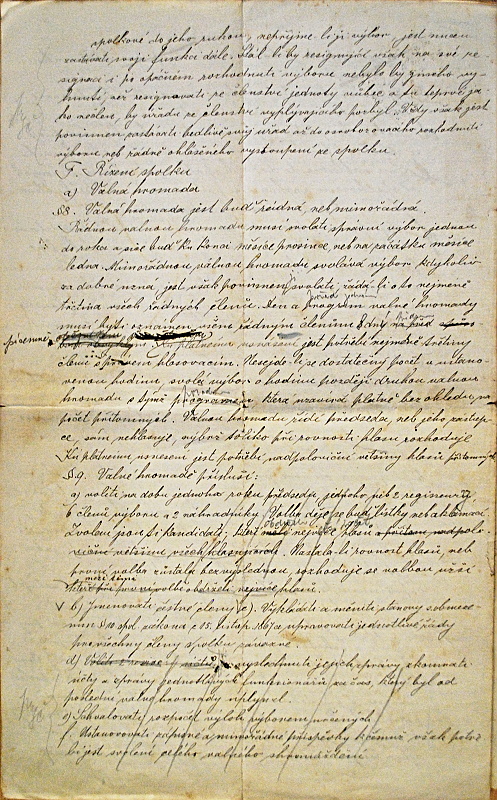 spolkové do jeho rukou, nepřijme-li ji výbor, jest nucen
zastávati svoji funkci dále. Stál-li by resignující však na své re-
signaci i po opačném rozhodnutí výboru nebylo by jiného vy-
hnutí, než resignovati po členství jednoty vůbec a tu teprve ja-
ko nečlen, by úřadu ze členství vyplývajícího pozbyl. Vždy však jest
povinnen zastávati bedlivě svůj úřad až do osvobozovacího rozhodnutí
výboru neb řádně ohlášeného vystoupení ze spolku.
F. Řízení spolku
a) Valná hromada
§8. Valná hromada jest buď řádná, neb mimořádná.
Řádnou valnou hromadu musí svolati správní výbor jednou
do roka a sice buď ku konci měsíce prosince, neb na začátku měsíce
ledna. Mimořádnou valnou hromadu svolává výbor kdykoliv
za dobré uzná, jest však povinnen svolati, žádá-li o to nejméně
třetina všech řádných členů. Den a program valné hromady
musí býti oznámen všem řádným členům 8 dní před
písemně Ku platnému usnesení jest potřebí nejméně třetiny
členů s právem hlasovacím. Nesejde-li se dostatečný počet v ustano-
venou hodinu, svolá výbor o hodinu později druhou valnou
hromadu s týmž programem, která usnáší platně bez ohledu na
počet přítomných. Valnou hromadu řídí předseda, neb jeho zástup-
ce, sám nehlasuje, vyjímá toliko při rovnosti hlasů rozhoduje
Ku platnému usnesení jest potřebí nadpoloviční většiny hlasů přítomných
§9. Valné hromadě přísluší:
a) voliti na dobu jednoho roku předsedu, jednoho neb 2
6 členů výboru a 2 náhradníky. Volba děje se buď lístky neb aklamací
Zvoleni jsou ti kandidáti, kteří nejvíce hlasů
většinu všech Nastala-li rovnost hlasů, neb
první volba zůstala bezvýslednou, rozhoduje se volbou užší
mezi těmi při první volbě obdrželi nejvíce hlasů.
b) Jmenovati čestné členy c). Vykládati a měniti stanovy s obmeze-
ním §10 spol. zákona z 15. listop. 1867 a upravovati jednotlivé řády
pro všechny členy spolku závazné.
d) vyslechnouti jejich zprávy, zkoumati
účty a zprávy jednotlivých funkcionářů za čas, který byl od
poslední valné hromady uplynul.
e) Schvalovati rozpočet vydání výborem učiněných
f. Ustanovovati zápisné a mimořádné příspěvky k čemuž však potře-
bí jest svolení celého valného shromáždění